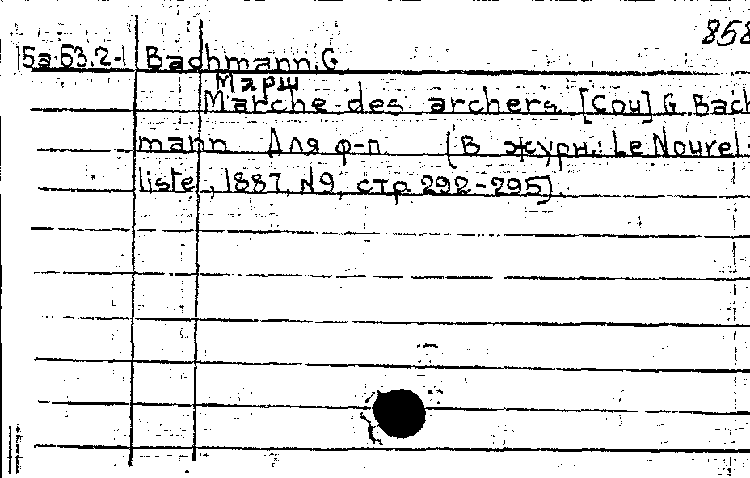 858
5a.53.2-1 Bachmann, G
Марш
Marche des archers. [Соч] G. Bach-
mann Для ф-п. (В журн.: Le Nouvel-
liste, 1887, N9, стр. 292-295).